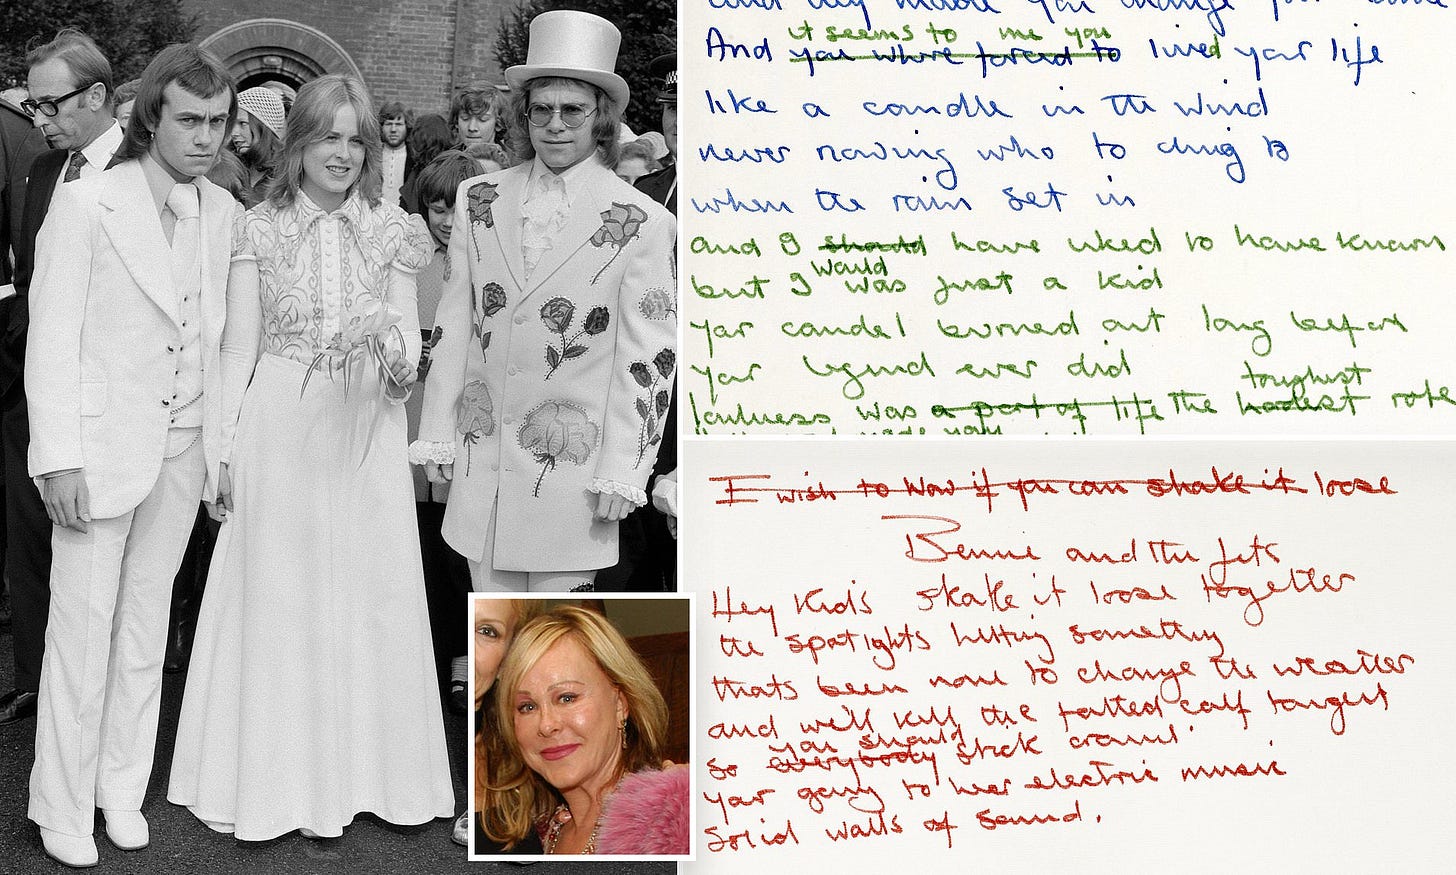 And you where forced to lived your life
it seems to me you
like a candle in the wind
never nowing who to cling to
when the rain set in
and I should have liked to have known
would
but I was just a kid
your candel burned out long before
your legend ever did
toughest
lonlness was a part of life the hardest role
I wish to now if you can shake it loose
Bennie and the Jets
Hey Kids shake it loose together
the spotlights hitting something
thats been none to change the weather
and we'll kill the fatted calf tongight
you should
so everybody stick around
your going to hear electric music
Solid walls of sound.